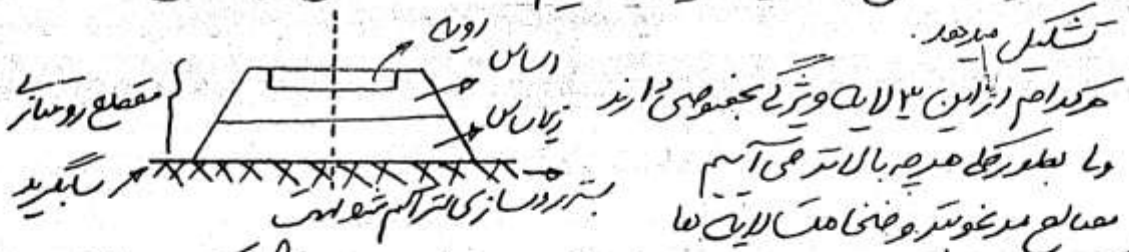 تشکیل میدهد.
هرکدام از این ۳ لایه ویژگی بخصوصی دارند
ولی بطور کلی هرچه بالاتر می آئیم
مصالح مرغوبتر و ضخامت لایه ها
رویه
اساس
زیراساس
مقطع روسازی
سابگرید
بستر روسازی متراکم شده است